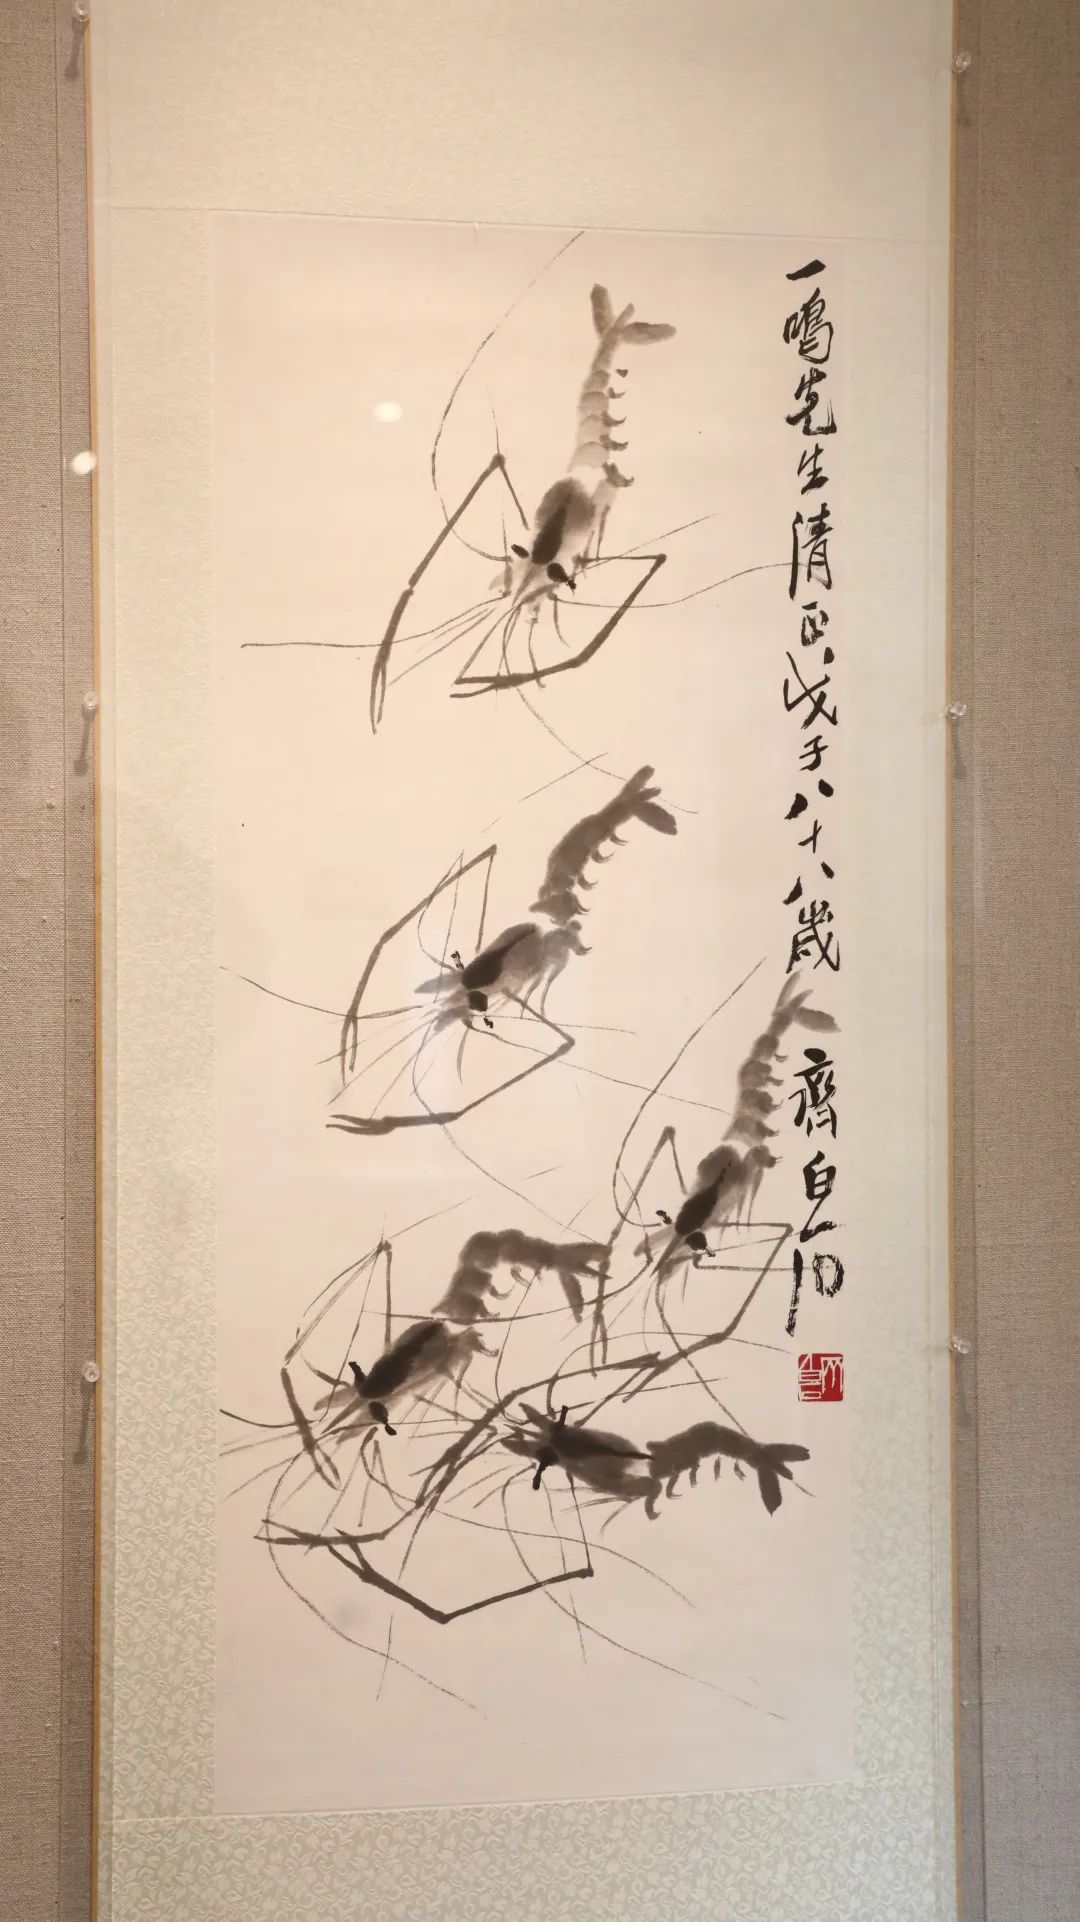 一鳴先生清正戊子八十八歲
齊白石